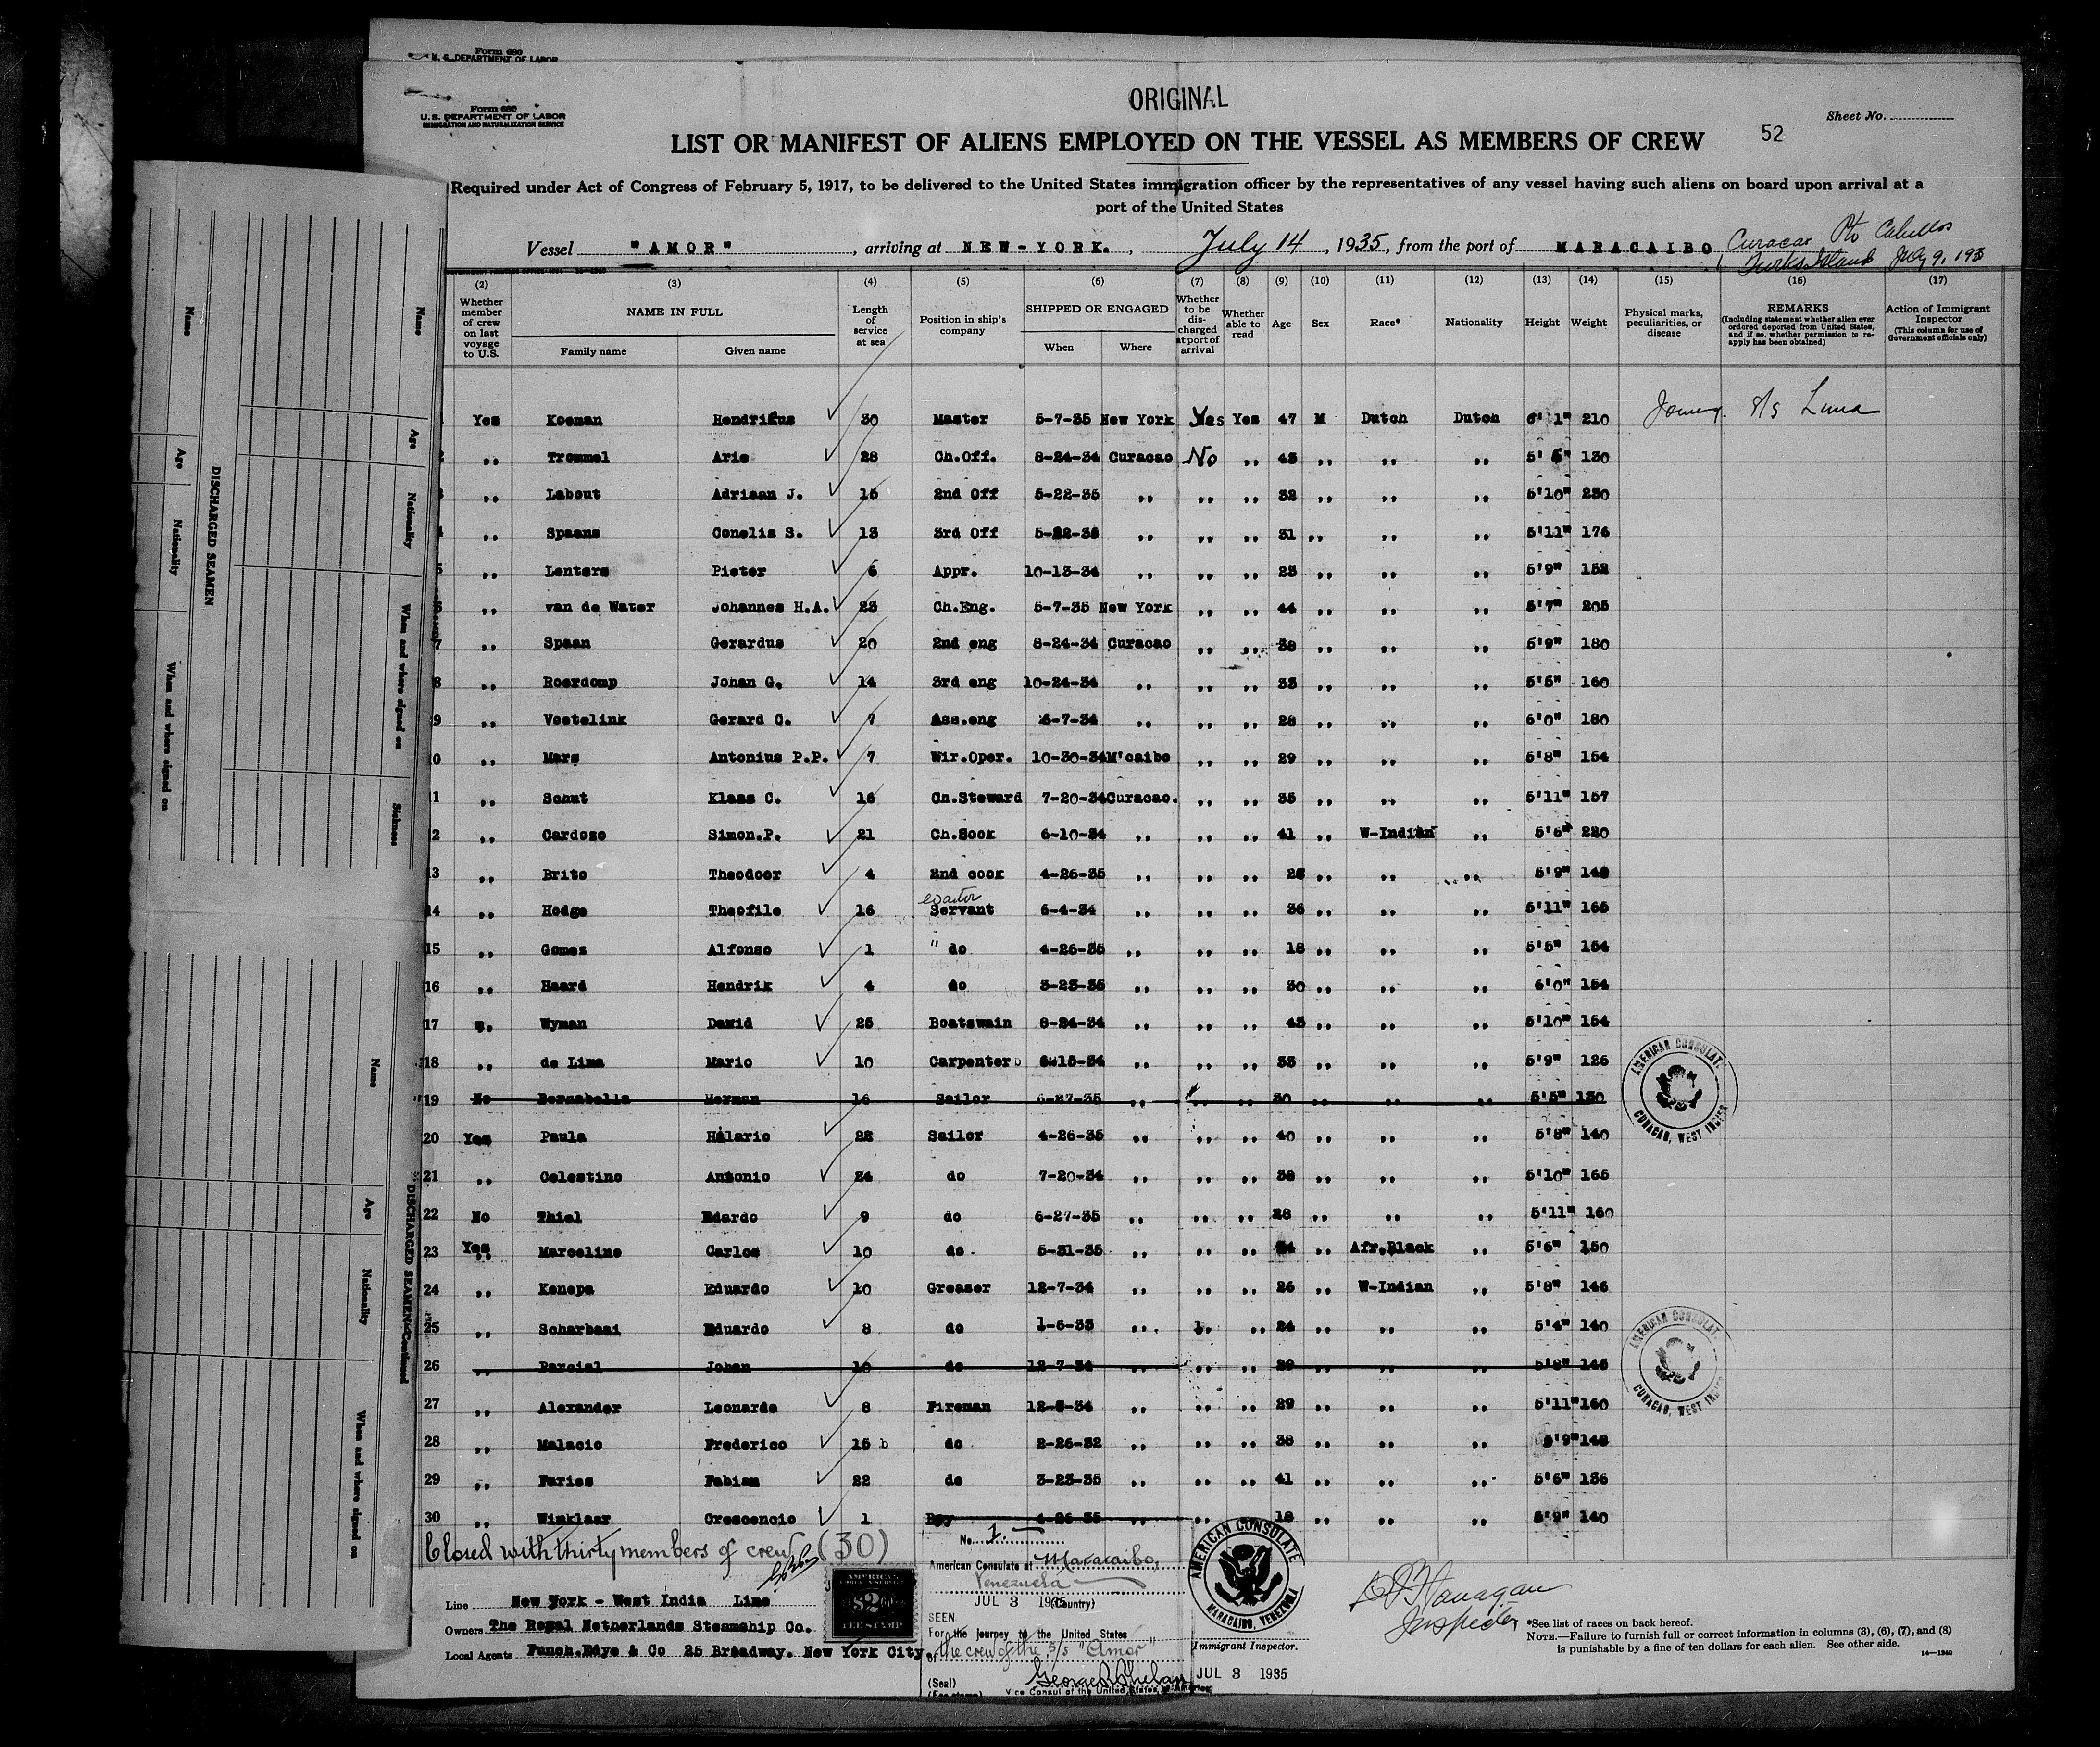 Form 680
U. S. DEPARTMENT OF LABOR
ORIGINAL
Form 680
U. S. DEPARTMENT OF LABOR
IMMIGRATION AND NATURALIZATION SERVICE
Sheet No.
LIST OR MANIFEST OF ALIENS EMPLOYED ON THE VESSEL AS MEMBERS OF CREW 52
Required under Act of Congress of February 5, 1917, to be delivered to the United States immigration officer by the representatives of any vessel having such aliens on board upon arrival at a
port of the United States
Vessel "AMOR", arriving at NEW-YORK., July 14, 1935, from the port of MARACAIBO Curacao Pto Cabellos
Turks Island July 9, 193
(2) (3) (4) (5) (6) (7) (8) (9) (10) (11) (12) (13) (14) (15) (16) (17)
Whether member of crew on last voyage to U.S.
NAME IN FULL
Family name Given name
Length of service at sea
Position in ship's company
SHIPPED OR ENGAGED
When Where
Whether to be discharged at port of arrival
Whether able to read
Age
Sex
Race*
Nationality
Height
Weight
Physical marks, peculiarities, or disease
REMARKS
(Including statement whether alien ever ordered deported from United States, and if so, whether permission to reapply has been obtained)
Action of Immigrant Inspector
(This column for use of Government officials only)
Yes Kosman Hendrikus 30 Master 5-7-35 New York Yes Yes 47 M Dutch Dutch 6' 1" 210 s/s Luna
,, Trommel Arie 28 Ch.Off. 8-24-34 Curacao No ,, 43 ,, ,, ,, 5' 130
,, Labout Adriaan J. 15 2nd Off 5-22-35 ,, ,, ,, 32 ,, ,, ,, 5'10" 230
,, Spaans Conelis S. 13 3rd Off 5-22-35 ,, ,, ,, 31 ,, ,, ,, 5'11" 176
5 ,, Lenters Pieter 6 Appr. 10-13-34 ,, ,, ,, 23 ,, ,, ,, 5'9" 152
,, van de Water Johannes H.A. 23 Ch.Eng. 5-7-35 New York ,, ,, 44 ,, ,, ,, 5'7" 205
7 ,, Spaan Gerardus 20 2nd eng 8-24-34 Curacao ,, ,, 38 ,, ,, ,, 5'9" 180
8 ,, Roerdomp Johan G. 14 3rd eng 10-24-34 ,, ,, ,, 33 ,, ,, ,, 5'5" 160
9 ,, Voetelink Gerard C. 7 Ass.eng 6-7-34 ,, ,, ,, 28 ,, ,, ,, 6'0" 180
0 ,, Mars Antonius P.P. 7 Wir.Oper. 10-30-34 M'caibo ,, ,, 29 ,, ,, ,, 5'8" 154
1 ,, Schut Klaas C. 16 Ch.Steward 7-20-34 Curacao. ,, ,, 35 ,, ,, ,, 5'11" 157
2 ,, Cardoze Simon.P. 21 Ch.Cook 6-10-34 ,, ,, ,, 41 ,, W-Indian ,, 5'6" 220
3 ,, Brito Theodoor 4 2nd cook 4-26-35 ,, ,, ,, ,, ,, ,, 5'9" 140
14 ,, Hodge Theofile 16 Servant 6-4-34 ,, ,, ,, 36 ,, ,, ,, 5'11" 165
15 ,, Gomez Alfonso 1 " do 4-26-35 ,, ,, ,, 18 ,, ,, ,, 5'5" 154
16 ,, Haard Hendrik 4 do 3-23-35 ,, ,, ,, 30 ,, ,, ,, 6'0" 154
17 ,, Wyman David 25 Boatswain 8-24-34 ,, ,, ,, 43 ,, ,, ,, 5'10" 154
18 ,, de Lima Mario 10 Carpenter 6-15-34 ,, ,, ,, 33 ,, ,, ,, 5'9" 126
19 No Bernabella Herman 16 Sailor 6-27-35 ,, ,, ,, 30 ,, ,, ,, 5'5" 130
20 Yes Paula Hilario 22 Sailor 4-26-35 ,, ,, ,, 40 ,, ,, ,, 5'8" 140
21 ,, Celestino Antonio 24 do 7-20-34 ,, ,, ,, 38 ,, ,, ,, 5'10" 165
22 No Thiel Edardo 9 do 6-27-35 ,, ,, ,, 28 ,, ,, ,, 5'11" 160
23 Yes Marceline Carlos 10 do. 5-31-35 ,, ,, ,, ,, Afr.Black ,, 5'6" 150
24 ,, Kenepa Eduardo 10 Greaser 12-7-34 ,, ,, ,, 26 ,, W-Indian ,, 5'8" 146
25 ,, Scharbaai Eduardo 8 do 1-6-33 ,, ,, 24 ,, ,, ,, 5'4" 140
26 ,, Parcial Johan 10 do 12-7-34 ,, ,, ,, 29 ,, ,, ,, 5'8" 145
27 ,, Alexander Leonardo 8 Fireman 12-6-34 ,, ,, ,, 29 ,, ,, ,, 5'11" 160
28 ,, Malacio Frederico 15 b do 2-26-32 ,, ,, ,, 38 ,, ,, ,, 5'9" 148
29 ,, Faries Fabian 22 do 3-23-35 ,, ,, ,, 41 ,, ,, ,, 5'6" 136
30 ,, Winklaar Crescencio 1 Boy 4-26-35 ,, ,, ,, 18 ,, ,, ,, 5'9" 140
AMERICAN CONSULATE
CURACAO, WEST INDIES
AMERICAN CONSULATE
CURACAO, WEST INDIES
Closed with thirty members of crew (30)
Line New York - West India Line
Owners The Royal Netherlands Steamship Co.
Local Agents Funch.Edye & Co 25 Broadway. New York City.
AMERICAN
$2
FEE STAMP
No. 1.
American Consulate at Maracaibo,
Venezuela
(Country)
JUL 3 1935
SEEN
For the journey to the United States
of the crew of the s/s "Amor"
(Seal)
(Fee stamp)
Vice Consul of the United States of America
AMERICAN CONSULATE
MARACAIBO, VENEZUELA
Immigrant Inspector.
JUL 3 1935
Inspector
*See list of races on back hereof.
NOTE.—Failure to furnish full or correct information in columns (3), (6), (7), and (8)
is punishable by a fine of ten dollars for each alien. See other side.
14—1240
DISCHARGED SEAMEN
Name
Age
Nationality
When and where signed on
Name
Age
Nationality
When and where signed on
Sickness
DISCHARGED SEAMEN—Continued
Name
Age
Nationality
When and where signed on